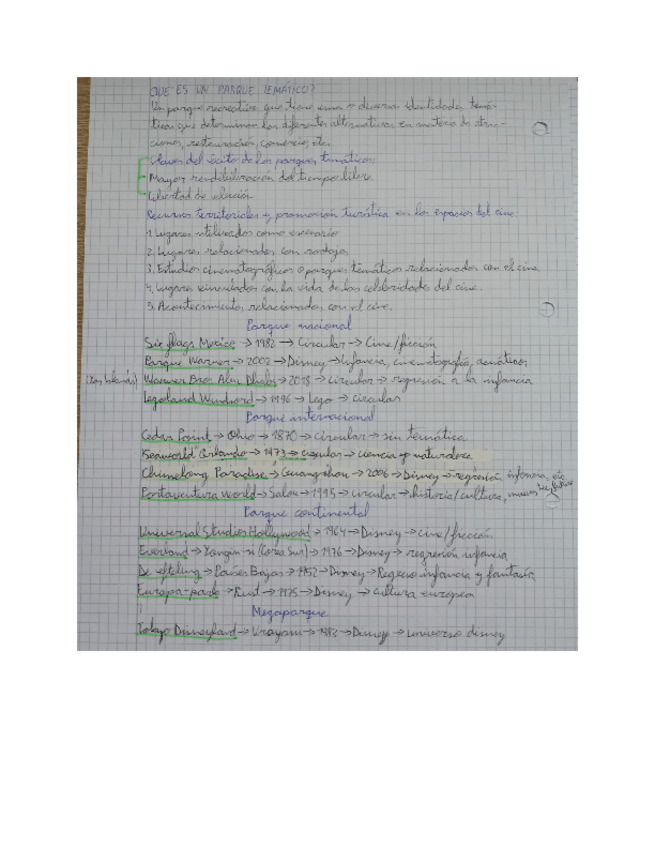 QUE ES UN PARQUE TEMÁTICO?
Un parque recreativo que tiene una o diversas identidades temá-
ticas que determinan los diferentes alternativas en materia de atrac-
ciones, restauración, comercio, etc.
Claves del éxito de los parques temáticos:
Mayor rendibilización del tiempo libre.
Libertad de elección
Recursos territoriales y promoción turística en los espacios del cine:
1. Lugares utilizados como escenario
2. Lugares relacionados con rodaje
3. Estudios cinematográficos o parques temáticos relacionados con el cine
4. Lugares vinculados con la vida de las celebridades del cine.
5. Acontecimientos relacionados con el cine.
Parque nacional
Six flags Mexico → 1982 → Circular → Cine/ficción
Parque Warner → 2002 → Disney → Infancia, cinematografía,
Warner Bros Abu Dhabi → 2018 → circular → regresión a la infancia
Legoland Windsord → 1996 → Lego → circular
Parque internacional
Cedar Point → Ohio → 1870 → circular → sin temática
Seaworld Orlando → 1973 → circular → ciencia y naturaleza
Chimelong Paradise → Guangzhou → 2006 → Disney → regresión infancia, etc
Portaventura World → Salou → 1995 → circular → historia/cultura,
Parque continental
Universal Studios Hollywood → 1964 → Disney → cine/ficción
Everland → Yongin-si (Corea Sur) → 1976 → Disney → regresión infancia
De efteling → Países Bajos → 1952 → Disney → Regreso infancia y fantasía
Europa-park → Rust → 1975 → Disney → cultura europea
Megaparque
Tokyo Disneyland → Urayasu → 1983 → Disney → universo disney